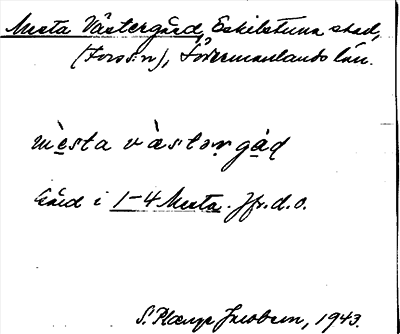 Mesta Västergård, Eskilstuna stad,
(Fors sn), Södermanlands län.
mèsta västərgåḍ
Gård i 1-4 Mesta. Jfr. d. o.
S. Jacobson, 1943.